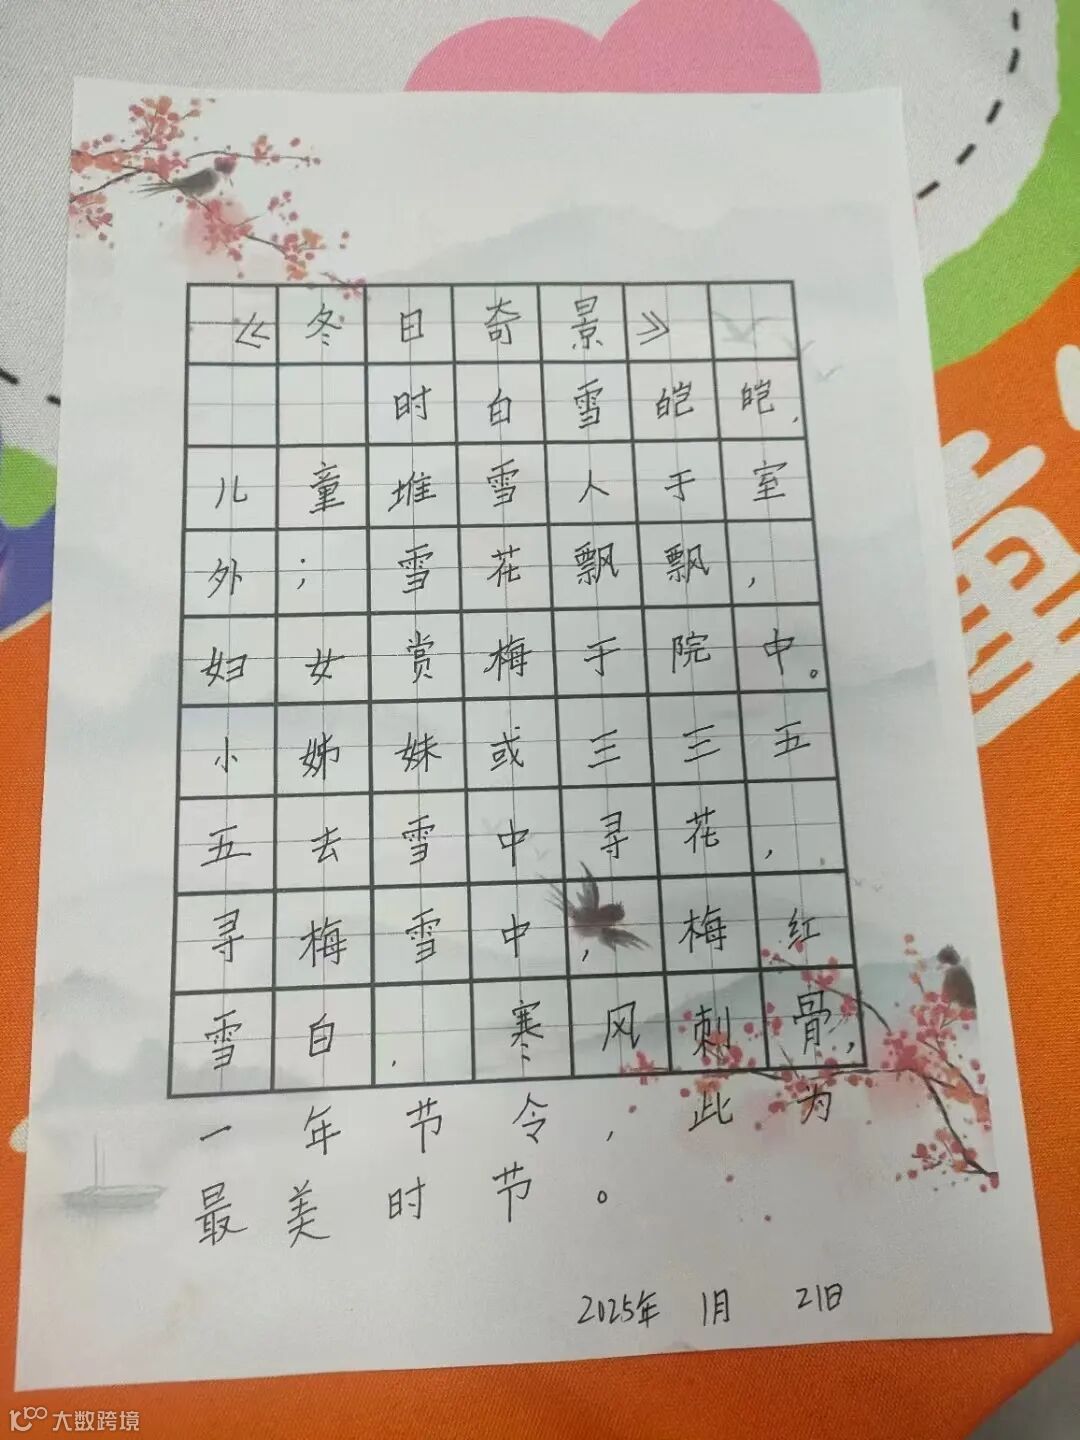 《冬日奇景》
时白雪皑皑,
儿童堆雪人于室
外；雪花飘飘,
妇女赏梅于院中。
小姊妹或三三五
五去雪中寻花,
寻梅雪中,梅红
雪白,寒风刺骨,
一年节令,此为
最美时节。
2025年 1月 21日
大数跨境